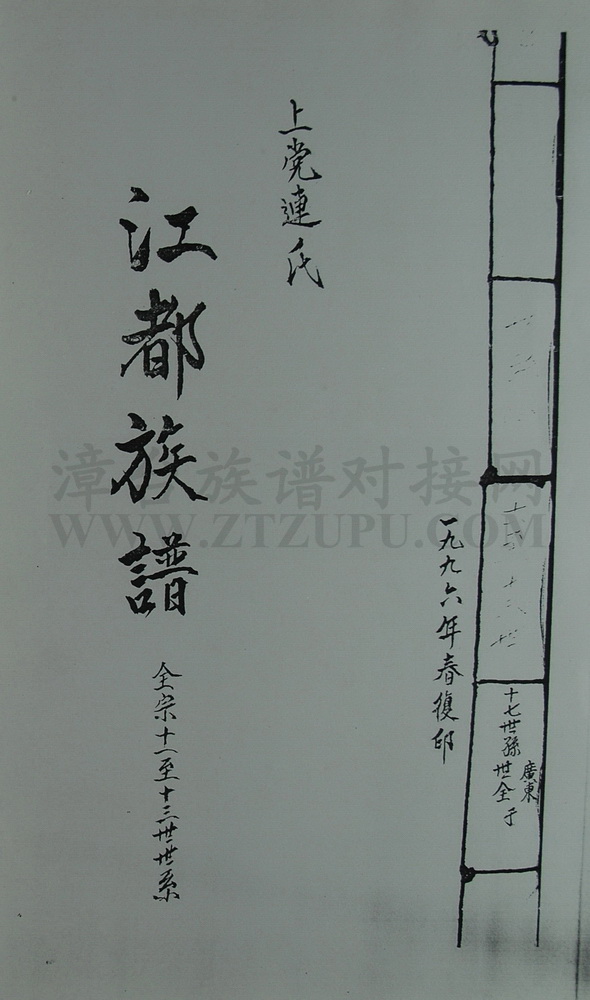 十七世孫世全于
廣東
一九九六年春復印
上党連氏
江都族譜
全宗十一至十三世世系
漳 族谱对接网
WWW.ZTZUPU.COM